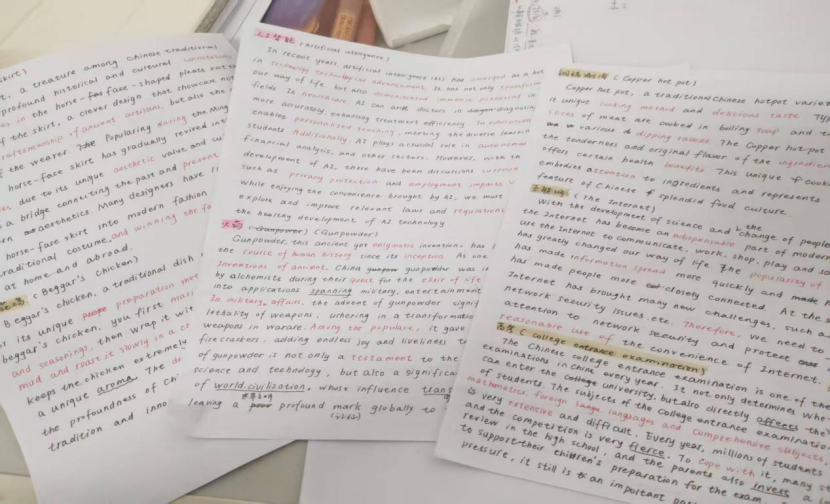 skirt)
t, a treasure among Chinese traditional
profound historical and cultural
in the horse-face-shaped pleats
of the skirt, a clever design that
craftsmanship of ancient artisans, but also the
of the wearer. Popularing during the Ming
horse-face skirt has gradually revived
due to its unique aesthetic value and cu
a bridge connecting the past and present
aesthetics. Many designers have i
horse-face skirt into modern fashion
raditional costume, and winning the fa
at home and abroad.
(Beggar's Chicken)
Beggar's chicken, a traditional dish
or its unique preparation me
beggar's chicken, you first mari
and seasonings, then wrap it wit
mud and roast it slowly in a c
keeps the chicken extremely
a unique aroma. The de
the profoundness of Chi
tradition and inno
人工智能 (Artificial intelligence)
In recent years, artificial intelligence (AI) has emerged as a hot
in technology technological advancement. It has not only transfor
our way of life but also demonstrated immense potential in
fields. In healthcare, AI can aid doctors in diagnosing
more accurately, enhancing treatment efficiently. In education
enables personalized teaching, meeting the diverse learnin
students. Additionally, AI plays a crucial role in autonomous
financial analysis, and other sectors. However, with the
development of AI, there have been discussions surroun
such as privacy protection and employment impacts. W
While enjoying the convenience brought by AI, we must
explore and improve relevant laws and regulations
the healthy development of AI technology.
火药 (Gunpowder) (Gunpowder)
Gunpowder, this ancient yet enigmatic invention, has
the course of human history since its inception. As one
Inventions of ancient China gunpow gunpowder was i
by alchemists during their quest for the elixir of life
into applications spanning military, entertainment
In military affairs, the advent of gunpowder signif
lethality of weapons, ushering in a transformation
weapons in warare. Among the populace, it gave
firecrackers, adding endless joy and liveliness to
of gunpowder is not only a testament to the
science and technology, but also a significa
of world civilization, whose influence trans
世界文明
leaving a profound mark globally to
(Copper hot pot)
Copper hot pot, a traditional Chinese hotpot variet
it unique cooking method and delicious taste. Typ
slices of meat are cooked in boiling soup and t
various dipping sauces. The Copper hot pot
the tenderness and original flavor of the ingredien
offers certain health benefits. This unique cookin
embodies attention to ingredients and represents
feature of Chinese splendid food culture.
互联网 (The Internet)
With the development of science and the change of people
the Internet has become an indispensable part of
use the Internet to communicate, work, shop, play and so
has greatly changed our way of life. The popularity of
has made information spread more quickly and made
has made people more closely connected. At the s
Internet has brought many new challenges, such as
network security issues etc. Therefore, we need to
attention to network security and protect
reasonable use of the convenience of Internet.
高考 (college entrance examination)
The Chinese college entrance examination is one of the
examinations in China every year. It not only determines whe
can enter the college university, but also directly affects the
of students. The subjects of the college entrance examination
mathematics, foreign languages and comprehensive subjects,
is very extensive and difficult. Every year, millions of students
and the competition is very fierce. To cope with it, many s
review in the high school, and the parents also invest a
to support their children's preparation for the exam.
pressure, it still is an important